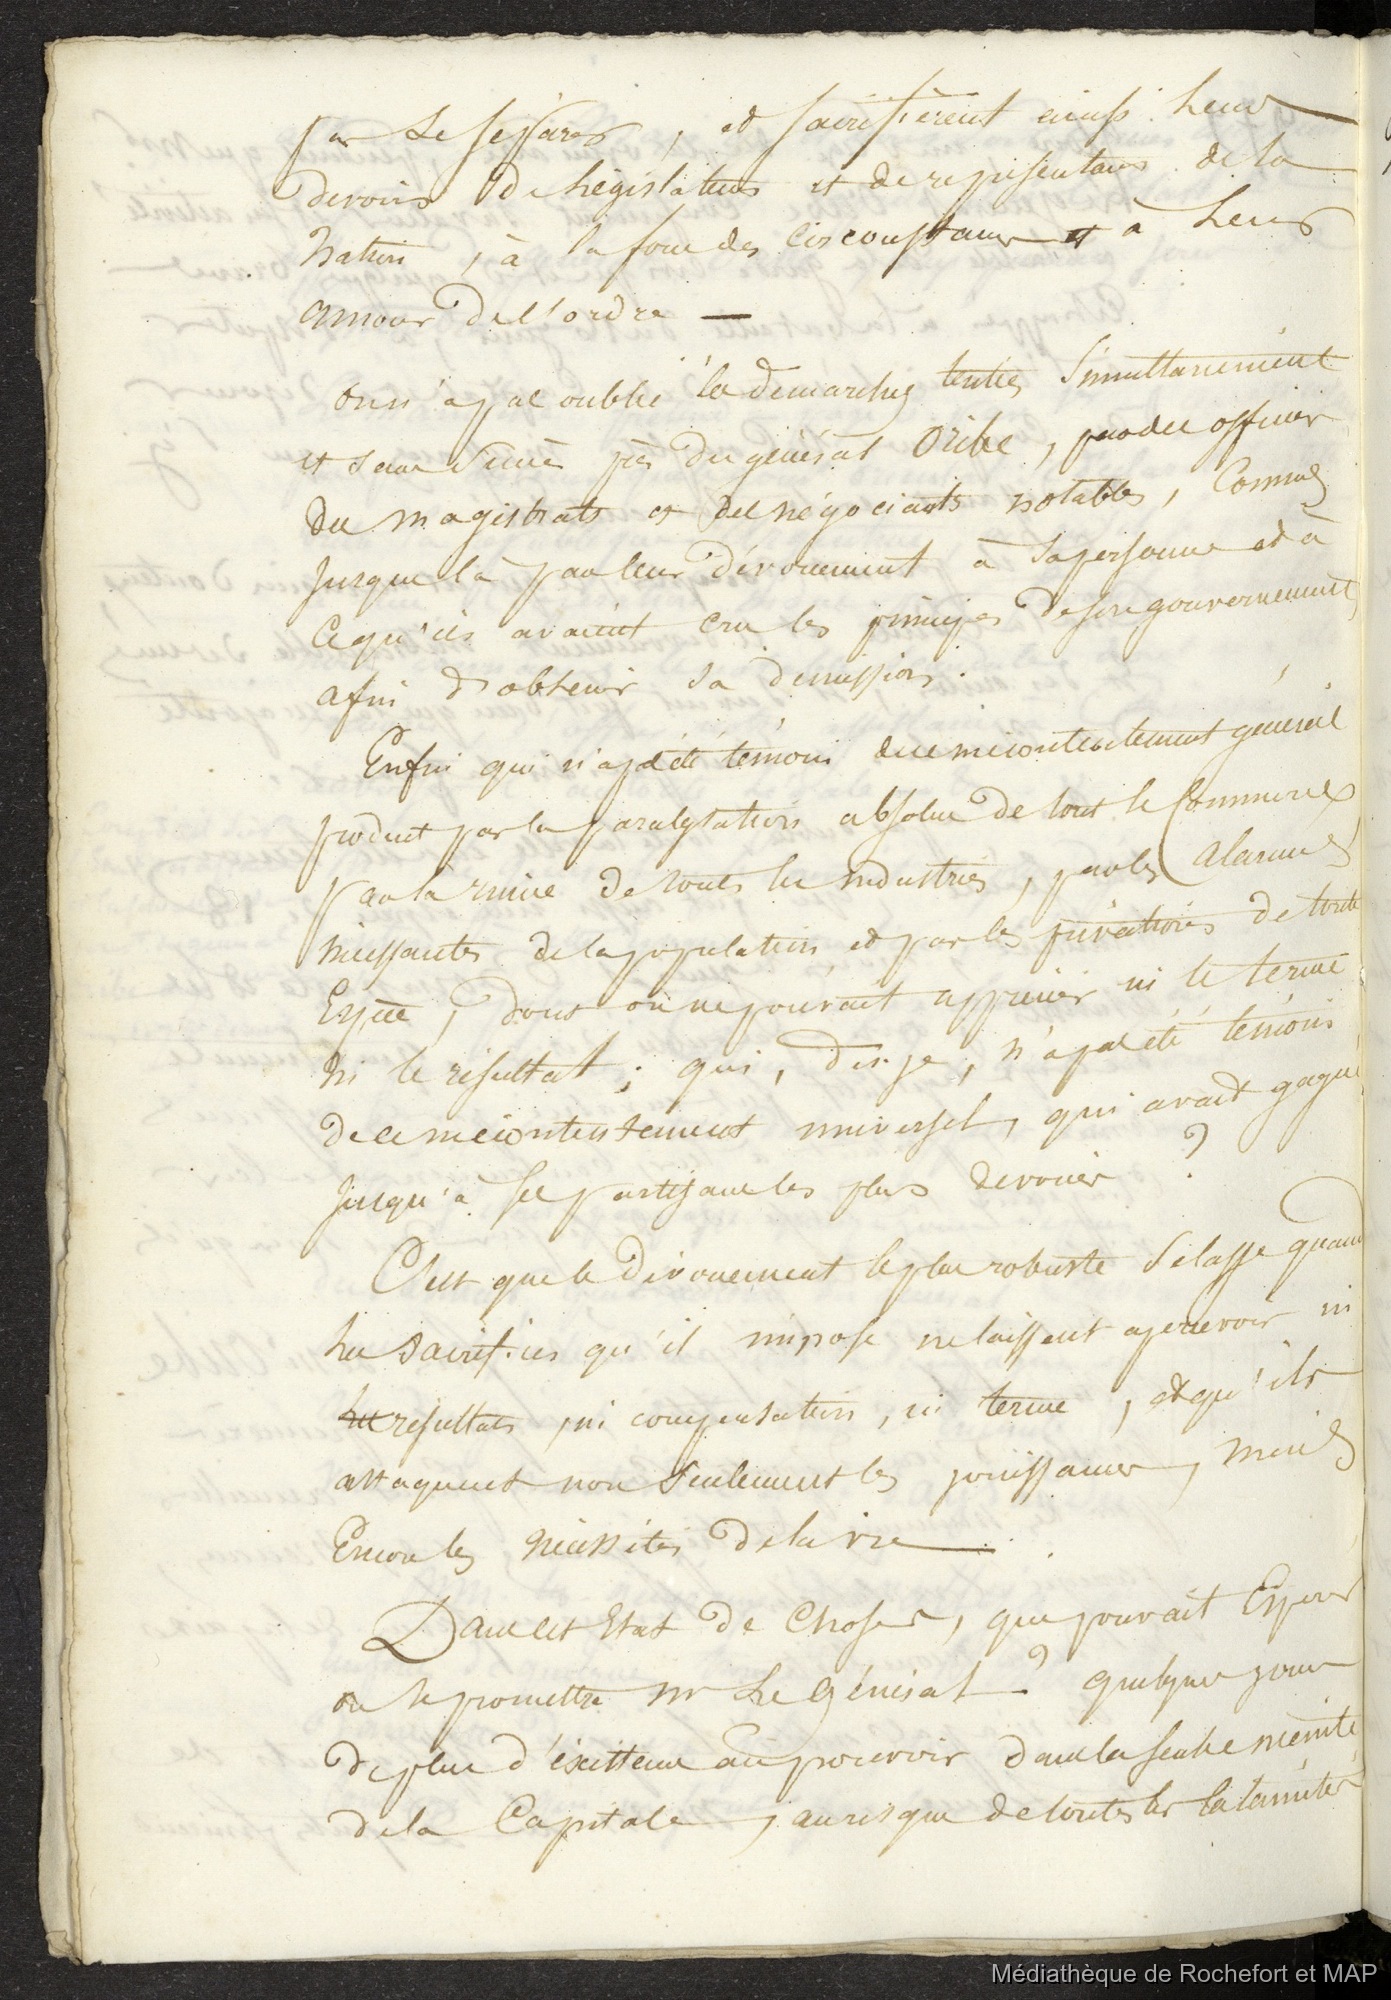 par se séparer, et sacrifièrent ainsi leurs
devoirs de législateurs et de représentans de la
Nation, à la force des circonstances et à leur
amour de l'ordre —
on n'a pas oublié les démarches tentées simultanément
et sans succès près du général Oribe, par des officiers
des magistrats et des négociants notables, connus
jusque là par leur dévouement à sa personne et à
ce qu'ils avaient cru les principes de son gouvernement,
afin d'obtenir sa démission.
Enfin qui n'a pas été témoin du mécontentement général
produit par la paralysation absolue de tout le commerce,
par la ruine de toutes les industries, par les alarmes
incessantes de la population et par les privations de toute
Espèce, dont on ne pouvait apprécier ni le terme
ni le résultat; qui, dis-je, n'a pas été témoin
de ce mécontentement universel, qui avait gagné
jusqu'à ses partisans les plus dévoués ?
C'est que le dévouement le plus robuste se lasse quand
les sacrifices qu'il impose ne laissent apercevoir ni
résultats, ni compensation, ni terme, et qu'ils
attaquent non seulement les jouissances, mais
Encore les nécessités de la vie —
Dans cet Etat de Choses, que pouvait Espérer
ou se promettre Mr Le Général ? quelques jours
de plus d'existence au pouvoir dans la seule enceinte
de la Capitale, au risque de toutes les calamités